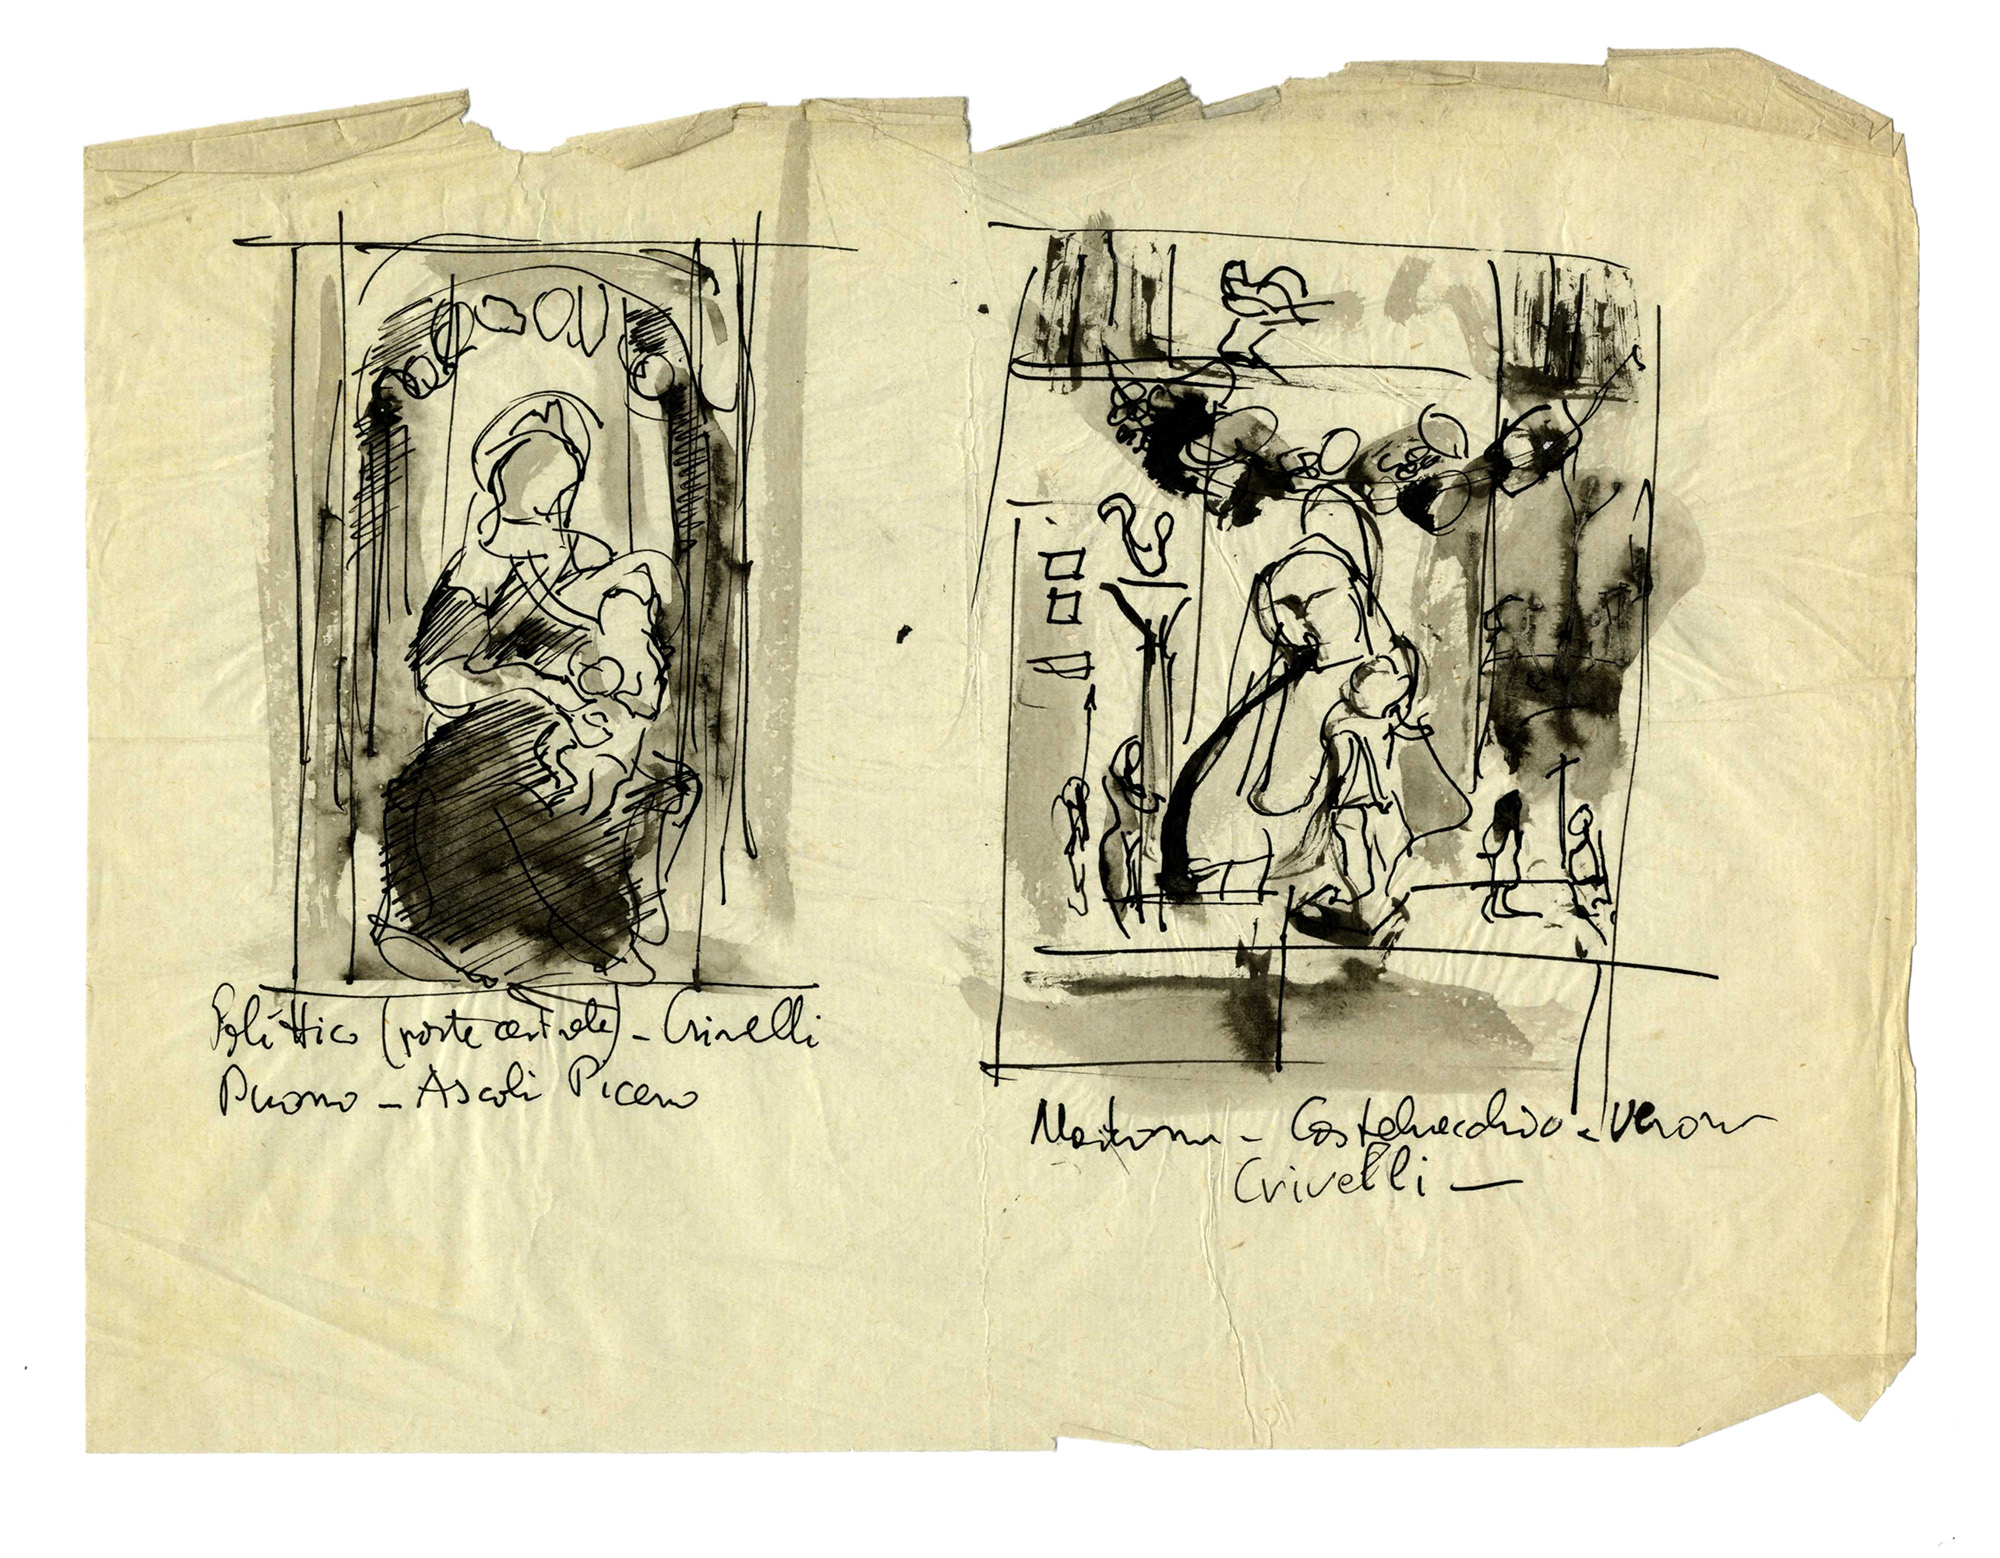 Polittico (parte centrale) - Crivelli
Duomo - Ascoli Piceno
Madonna - Castelvecchio - Verona
Crivelli -